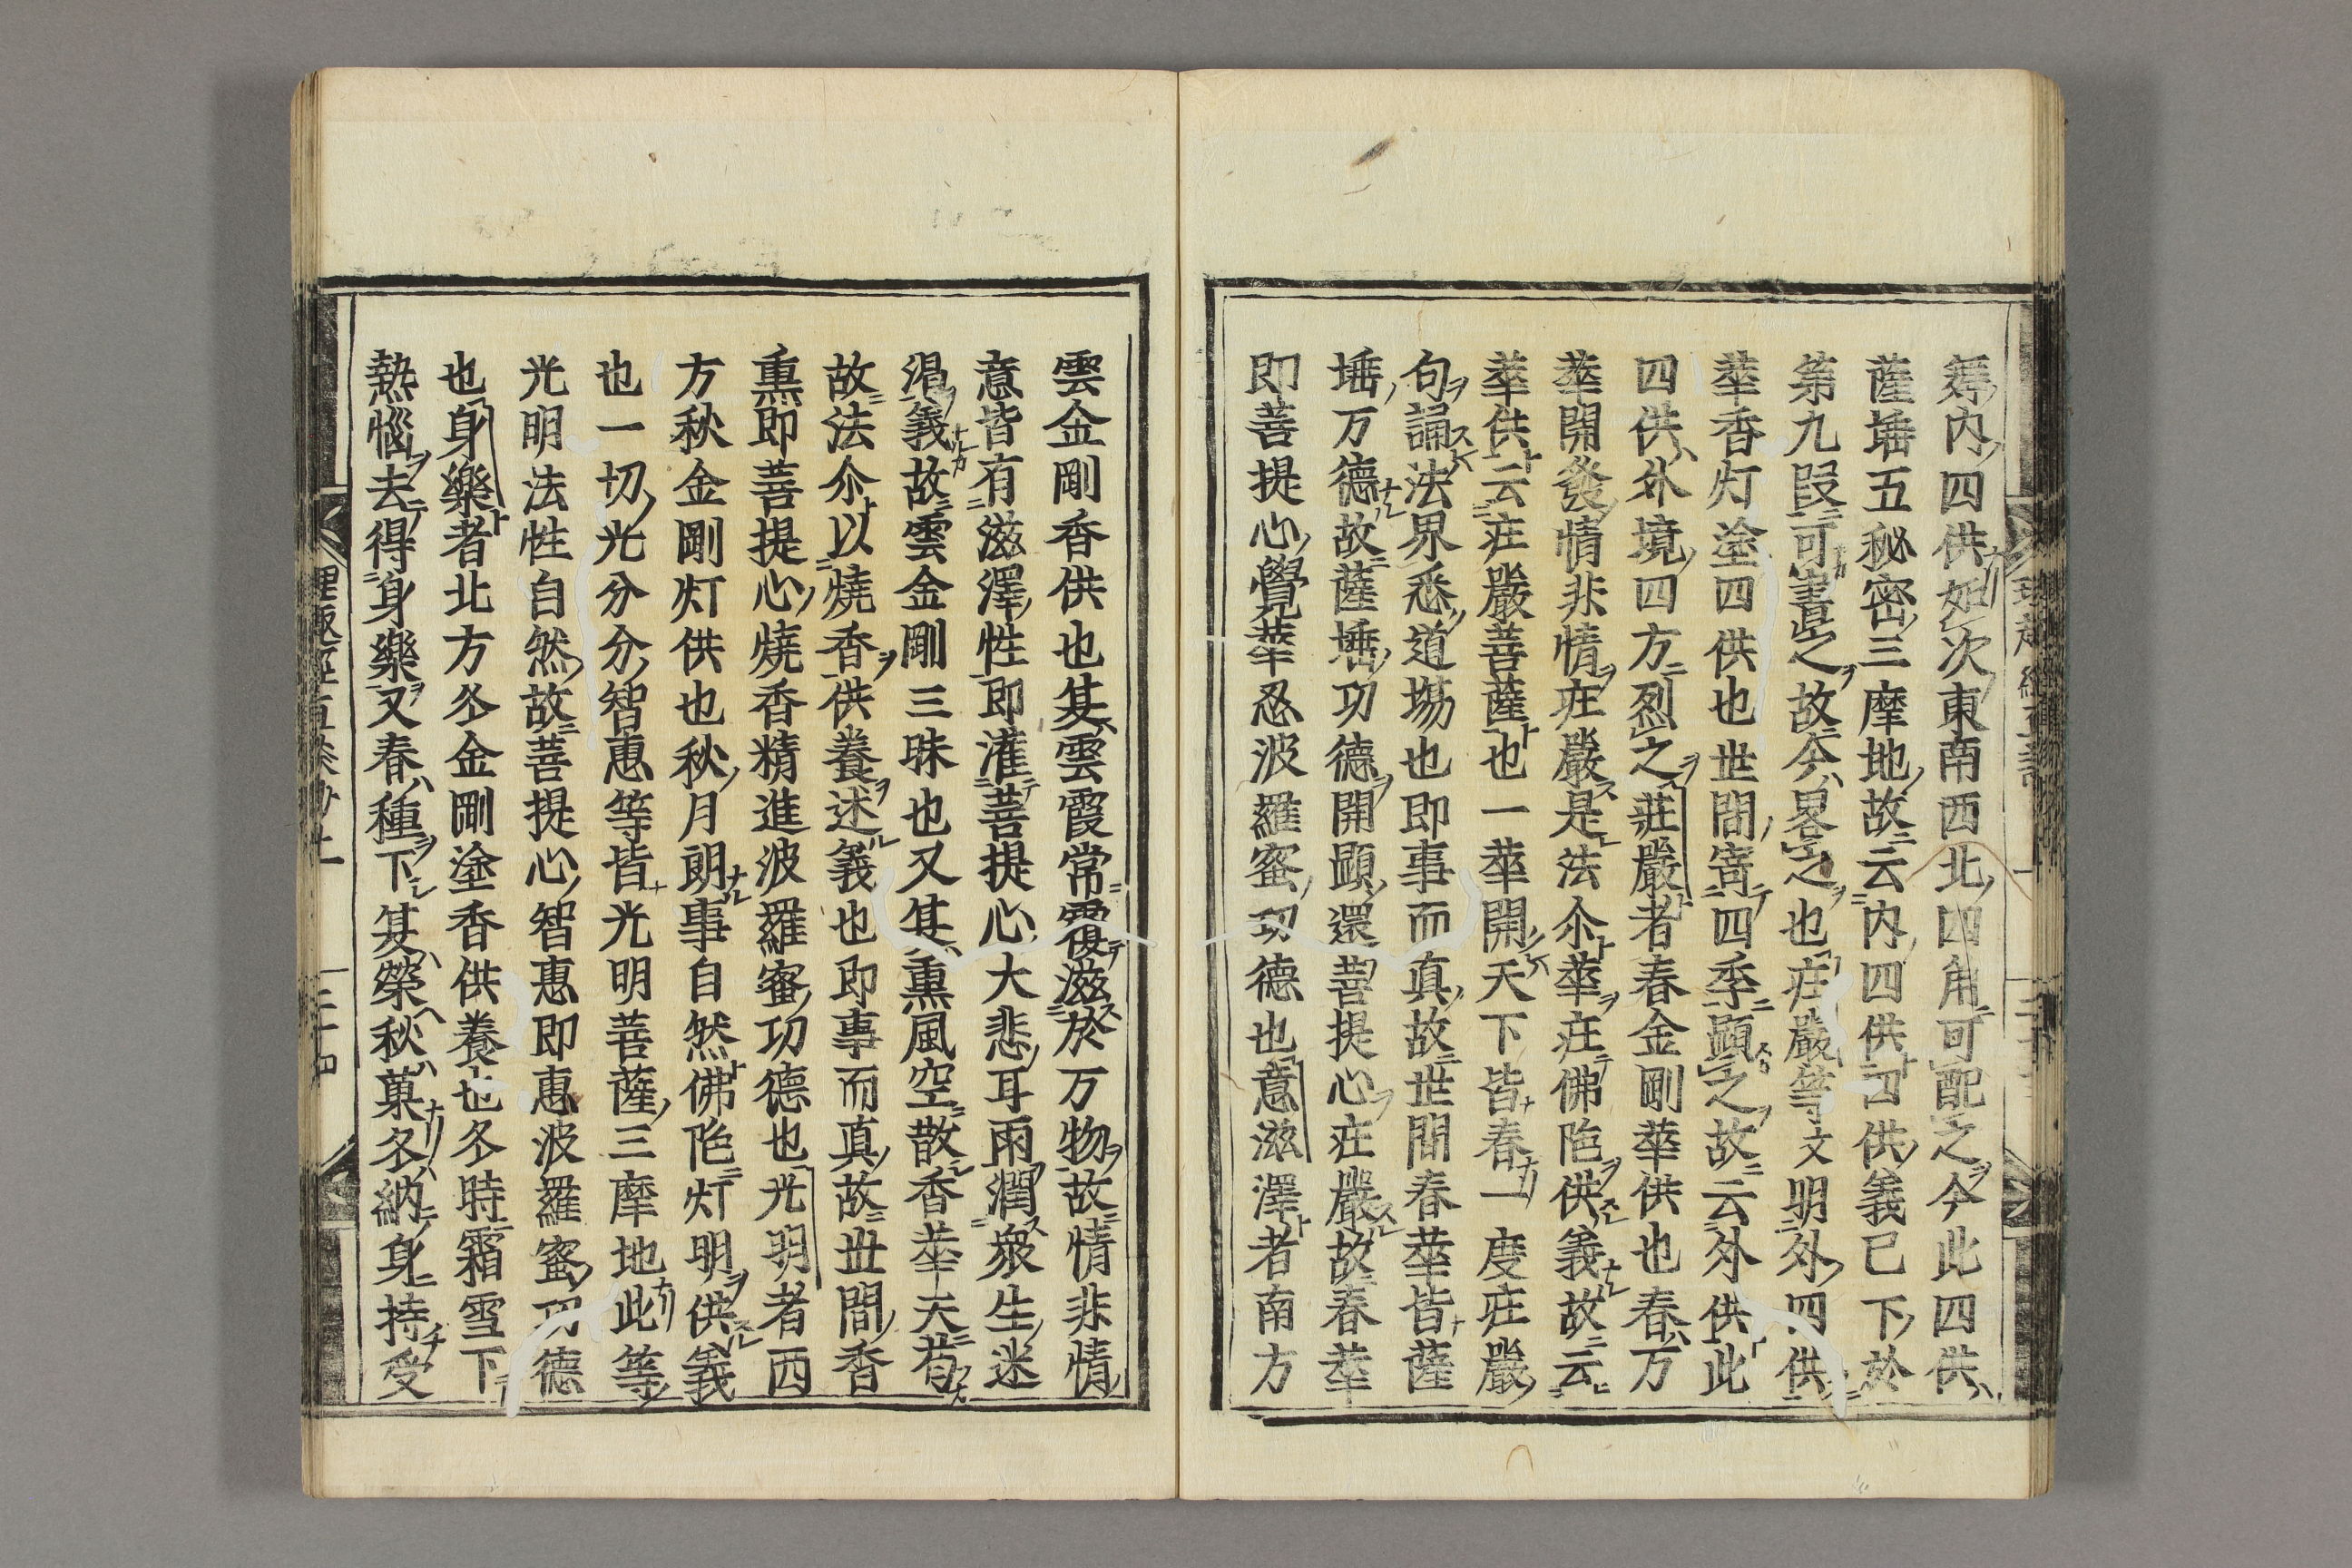 舞内四供如次東南西北四角可配之今此四供
薩埵五秘密三摩地故云内四供四供義已下於
第九段可書之故今畧之也庄嚴等文明外四供
華香灯塗四供也世間寄四季顕之故云外供此
四供外境四方烈之莊嚴者春金剛華供也春万
華開發情非情庄嚴是法尒華庄佛陁供義故云
華供云庄嚴菩薩也一華開天下皆春一度庄嚴
句誦法界悉道場也即事而真故世間春華皆薩
埵万德故薩埵功德開顕還菩提心庄嚴故春華
即菩提心覺華忍波羅蜜功德也意滋澤者南方
雲金剛香供也夏雲霞常覆滋於万物故情非情
意皆有滋澤性即灌菩提心大悲耳雨潤衆生迷
渴義故雲金剛三昧也又夏薫風空散香華天
故法尒以燒香供養述義也即事而真故世間香
薫即菩提心燒香精進波羅蜜功德也光明者西
方秋金剛灯供也秋月朗事自然佛陁灯明供義
也一切光分分智惠等皆光明菩薩三摩地此等
光明法性自然故菩提心智惠即惠波羅蜜功德
也身樂者北方冬金剛塗香供養也冬時霜雪下
熱惱去得身樂又春種下夏榮秋菓冬納身持受